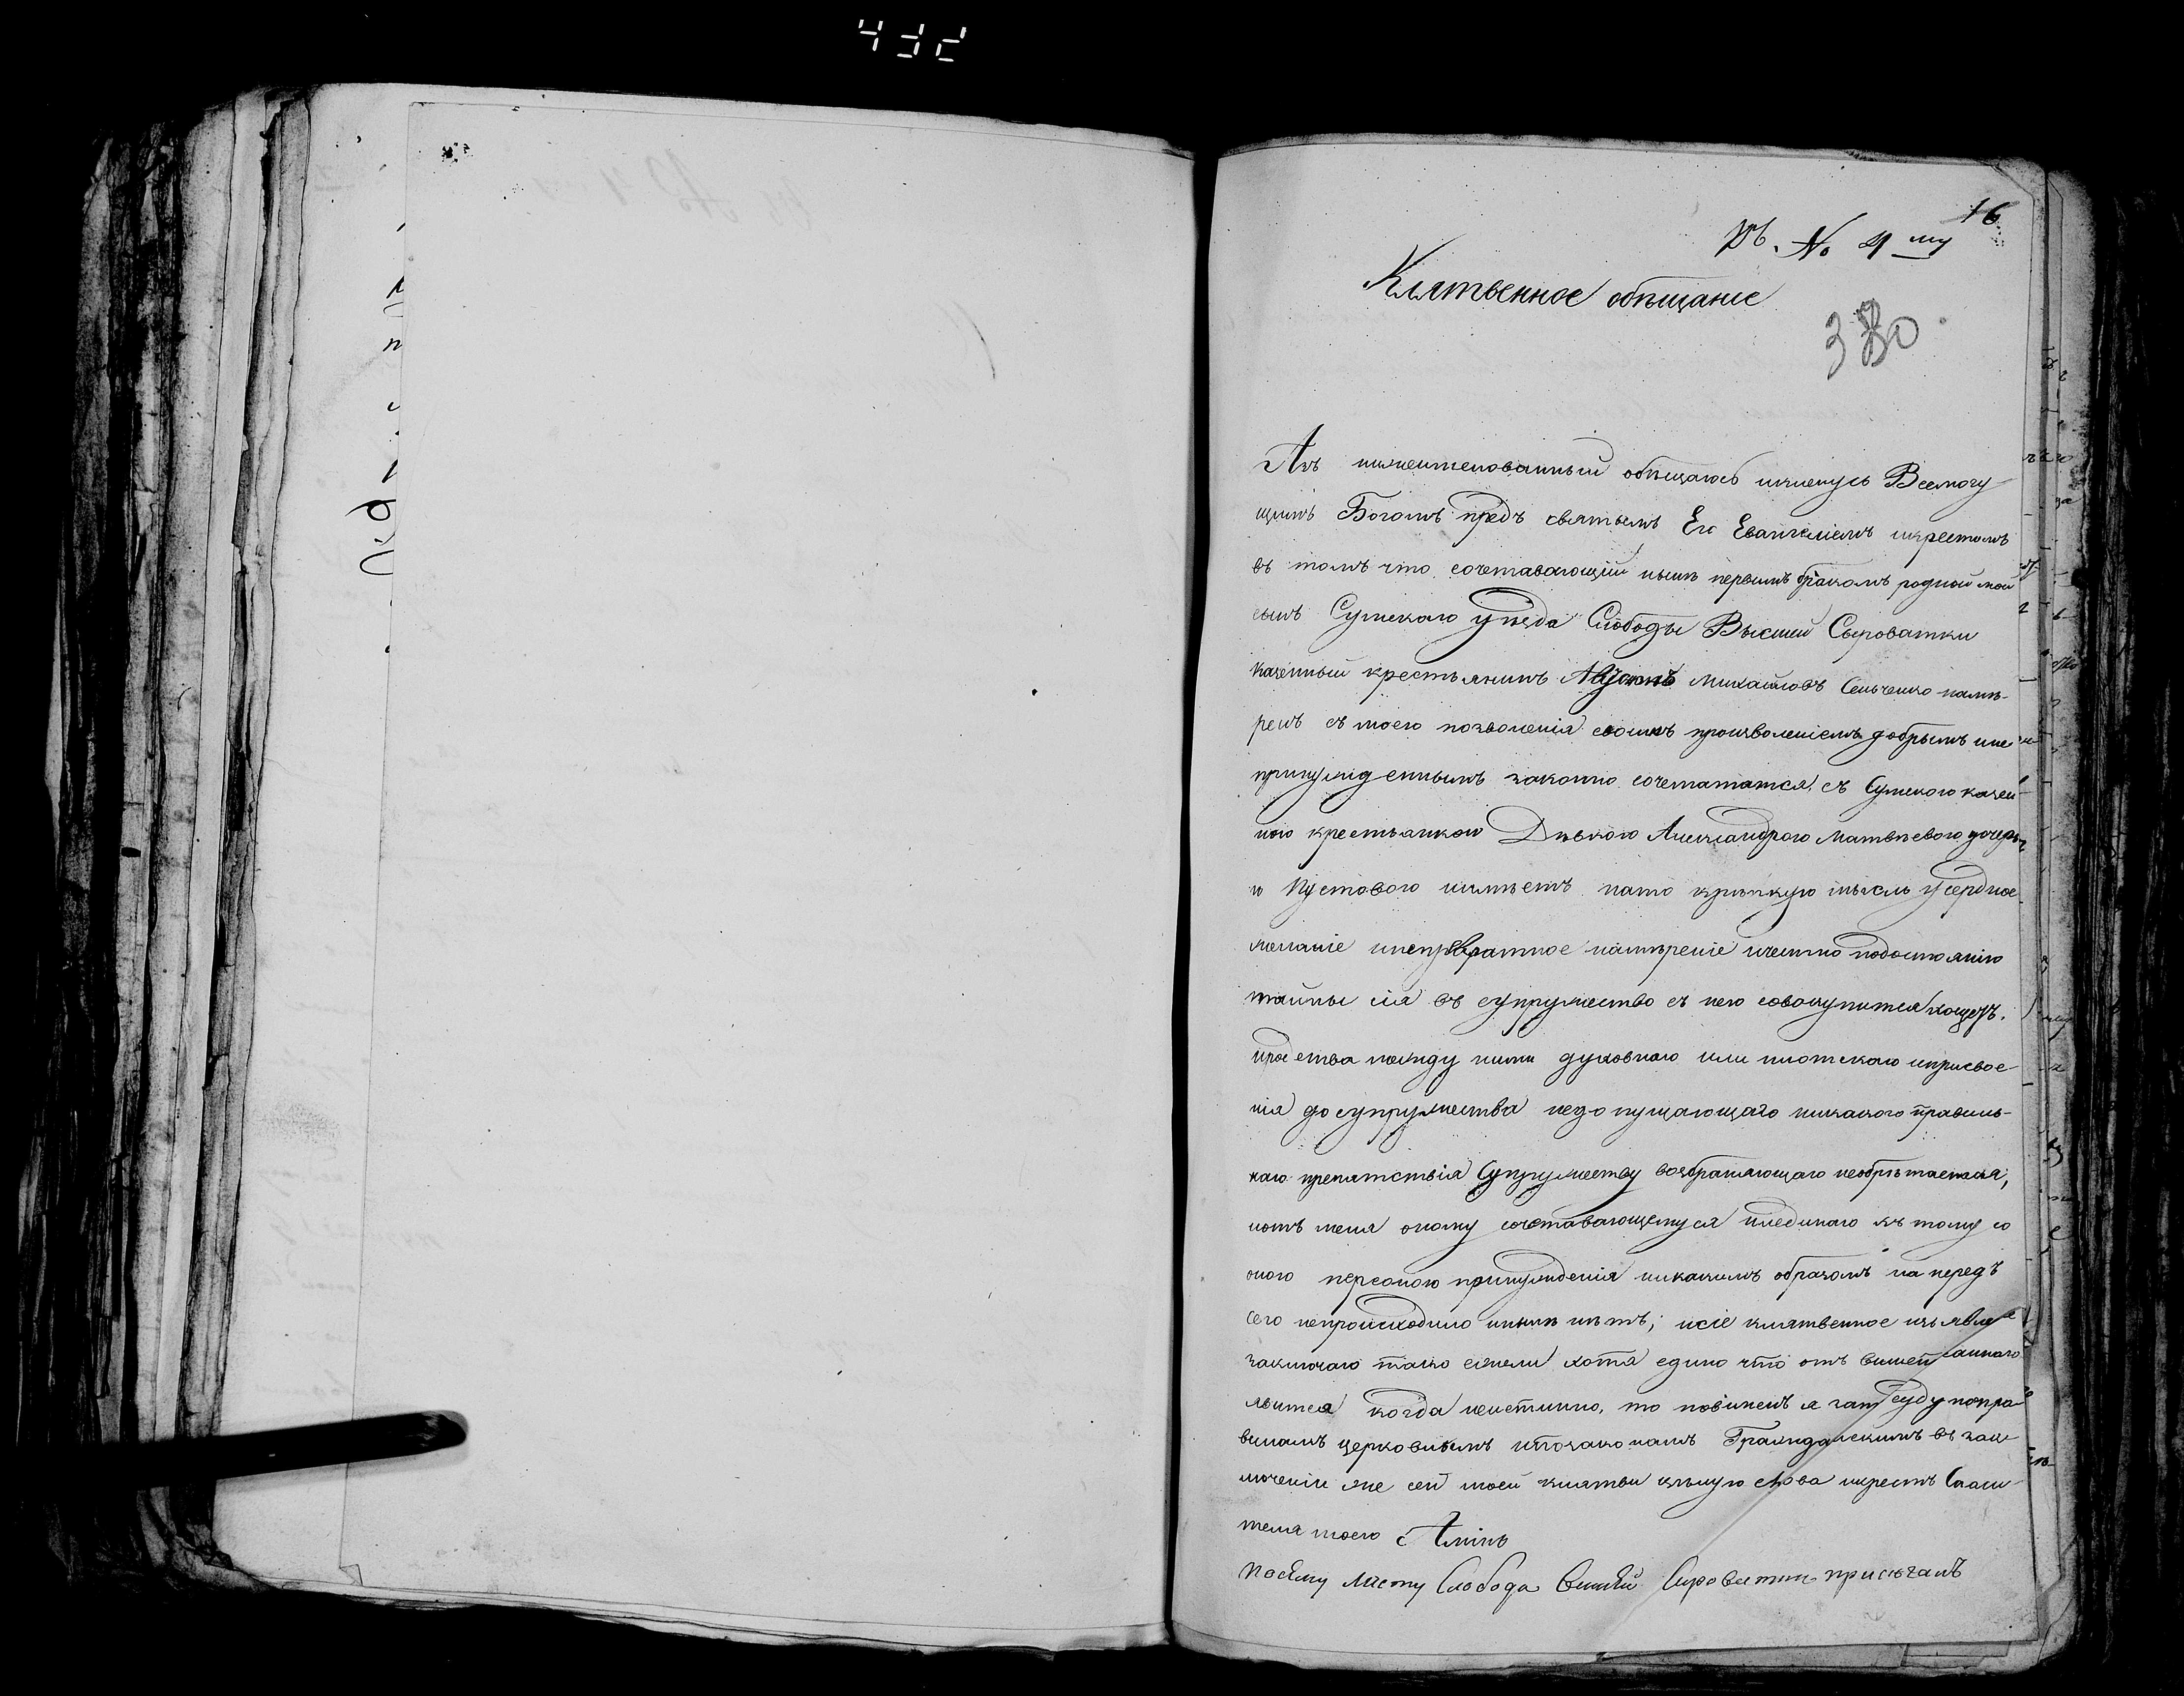 432
16
къ № 4 му
Клятвенное обѣщаніе
380
Азъ нижеименованный обѣщаюсь иклянусь Всемогу
щимъ Богомъ предъ святымъ Его Евангеліемъ икрестомъ
въ томъ что сочетавающій нынѣ первымъ бракомъ родной мой
сынъ Сумскаго уѣзда Слободы Высшей Сыроватки
казенный крестьянинъ Михайловъ Сенченко намѣ-
ренъ съ моего позволенія своимъ произволеніемъ добрымъ ине
принужденнымъ законно сочетатися съ Сумскою казен-
ною крестьянкою Дѣвкою Александрою Матвѣевою дочерь
ю Пустовою иимѣетъ нато крѣпкую мысль усердное
желаніе инепревратное намѣреніе ичестно подостоянію
тайны сія въ супружество съ нею совокупится хощетъ.
иродства между ними духовнаго или плотскаго иприсвое-
нія до супружества недопущающаго никакого правиль-
наго препятствія Супружеству возбраняющаго необрѣтается,
иотъ меня оному сочетавающемуся ниединаго къ тому со
оною персоною принужденія никакимъ образомъ на передъ
сего непроисходило инынѣ нѣтъ; исіе клятвенное изъявле
заключаю тако ежели хотя едино что отъ вишеп саннаго
явится когда неистинно, то повиненъ я зато суду попра
виламъ церковнымъ ипозаконамъ Гражданскимъ въ зак
люченіи же сей моей клятвы цѣлую слова икрестъ Спаси
теля моего Аминь
посему листу Слобода Вишей Сироватки присягалъ